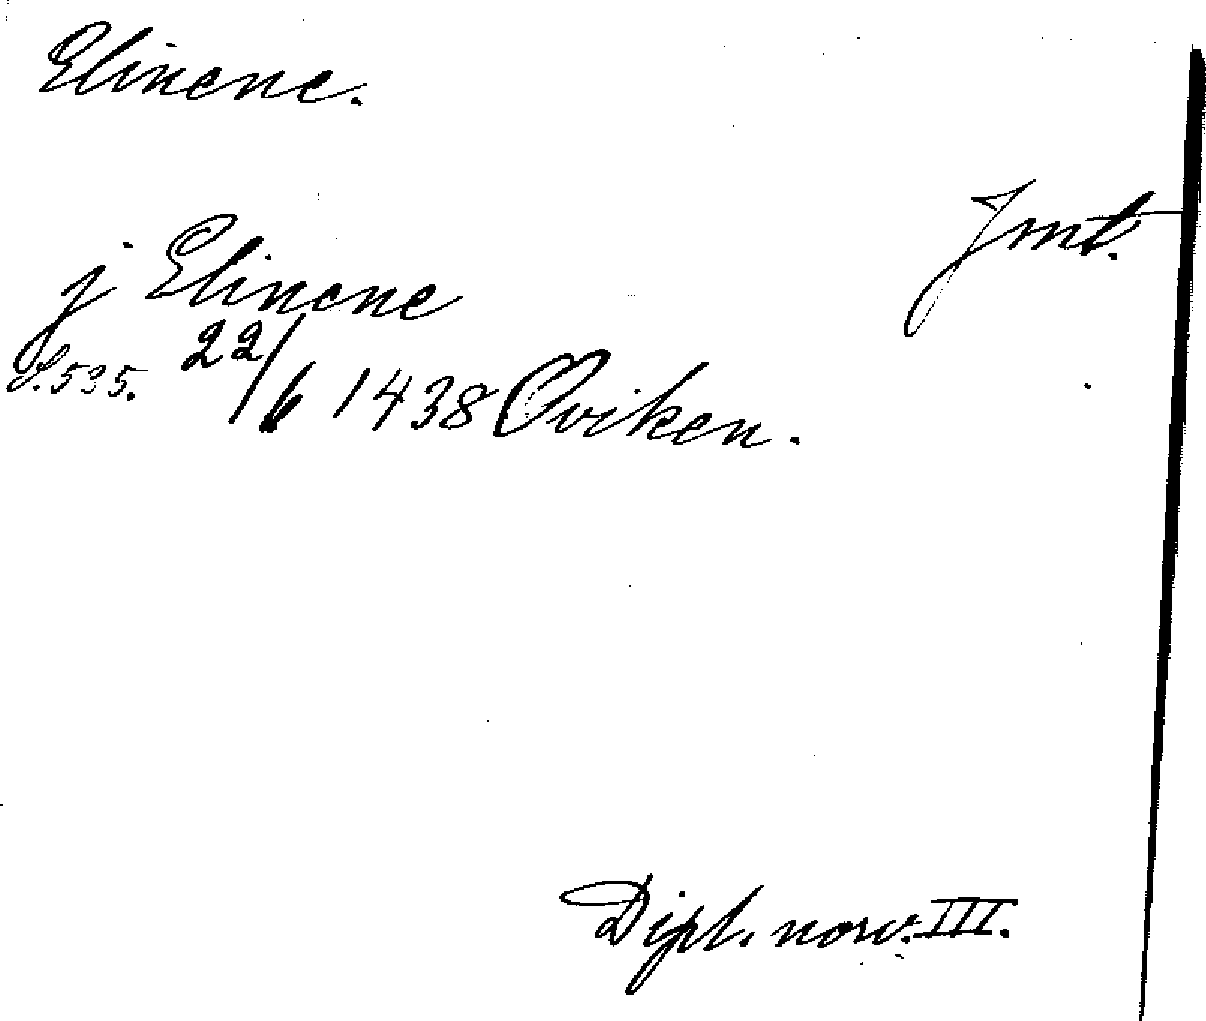 Elinene.
Jmt.
j Elinene
S.535. 22/6 1438 Oviken.
Dipl. norv. III.